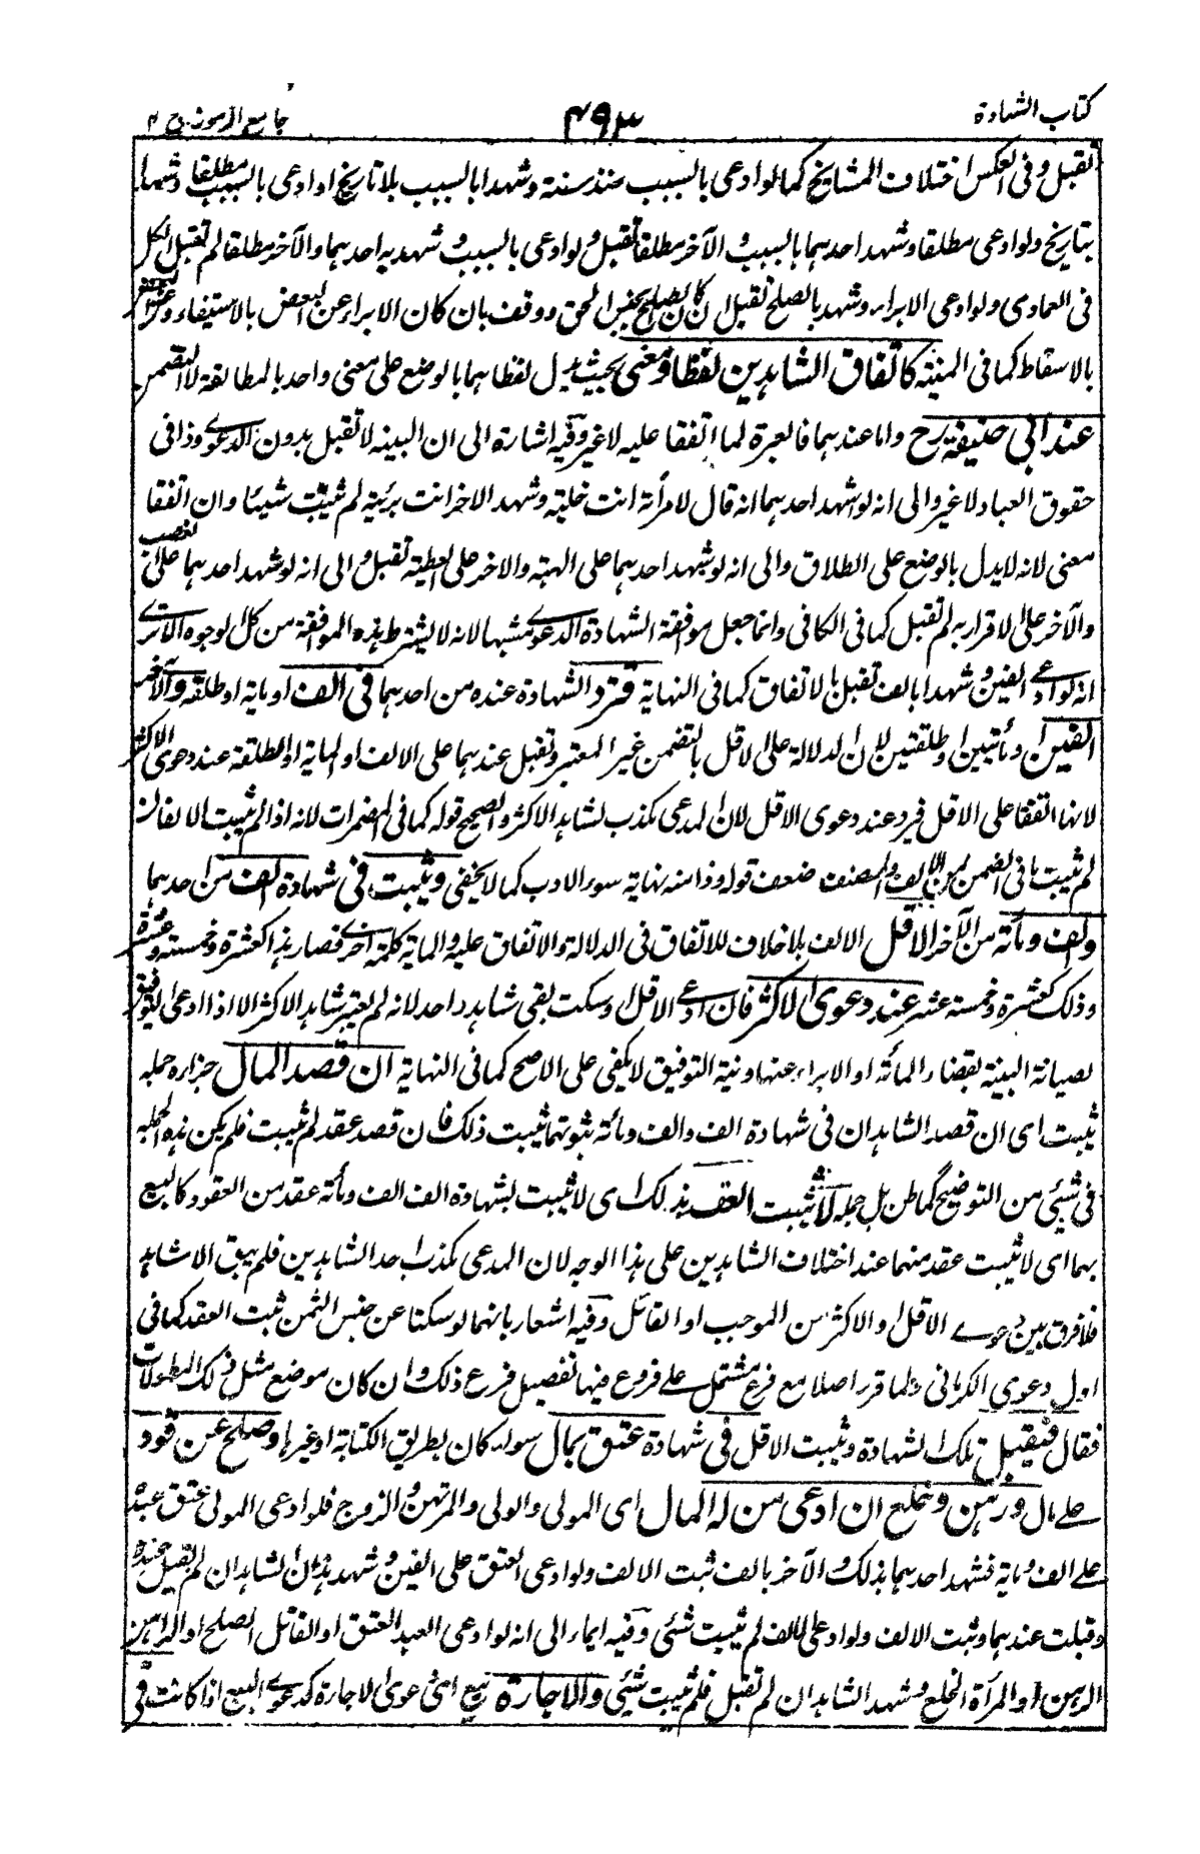 كتاب الشهادة
٤٩٣
جامع الرموز ج ٢
تقبل وفى العكس اختلاف المشايخ كما لو ادعى بالسبب منذ سنة وشهدا بالسبب بلا تاريخ او ادعى بالسبب مطلقا وشهدا
بتاريخ ولو ادعى مطلقا وشهد احدهما بالسبب والآخر مطلقا تقبل ولو ادعى بالسبب وشهد به احدهما والآخر مطلقا لم تقبل الكل
فى العمادى ولو ادعى الابراء وشهد بالصلح تقبل ان كان الصلح بجنس الحق ووقف بان كان الابراء عن البعض بالاستيفاء وعن البعض
بالاسقاط كما فى المنية كاتفاق الشاهدين لفظا ومعنى بحيث يدل لفظاهما بالوضع على معنى واحد بالمطابقة لا التضمن
عند ابى حنيفة رح واما عندهما فالعبرة لما اتفقا عليه لا غير وفيه اشارة الى ان البينة لا تقبل بدون الدعوى وذا فى
حقوق العباد لا غير والى انه لو شهد احدهما انه قال لامرأة انت خلية وشهد الاخر انت برئية لم يثبت شيئا وان اتفقا
معنى لانه لا يدل بالوضع على الطلاق والى انه لو شهد احدهما على الهبة والاخر على العطية تقبل والى انه لو شهد احدهما على الغصب
والآخر على الاقرار به لم تقبل كما فى الكافى وانما جعل موافقة الشهادة الدعوى مشبها لانه لا يشترط هذه الموافقة من كل الوجوه الا ترى
انه لو ادعى الفين وشهدا بالف تقبل بالاتفاق كما فى النهاية فترد الشهادة عنده من احدهما فى الف او ماية او طلقة والآخر
الفين او مأتين او طلقتين لان الدلالة على الاقل بالتضمن غير المعتبر وتقبل عندهما على الالف او الماية او الطلقة عند دعوى الاكثر
لانهما اتفقا على الاقل فيرد عند دعوى الاقل لان المدعى يكذب لشاهد الاكثر والصحيح قوله كما فى المضمرات لانه اذا لم يثبت الالفان
لم يثبت ما فى الضمن من الالف والمصنف ضعف قوله وذا منه نهاية سوء الادب كما لا يخفى ويثبت فى شهادة الف من احدهما
والف ومأة من الآخر الاقل الالف بلا خلاف للاتفاق فى الدلالة والاتفاق عليه والماية كلمة اخرى فصار هذا كعشرة وخمسة وعشرة
وذلك كعشرة وخمسة عشر عند دعوى الاكثر فان ادعى الاقل او سكت بقى شاهد واحد لانه لم يعتبر شاهد الاكثر الا اذا ادعى التوفيق
لصيانة البينة بقضاء المأة او الابراء عنها ونية التوفيق لا يكفى على الاصح كما فى النهاية ان قصد المال جزاره جمله
يثبت اى ان قصد الشاهدان فى شهادة الف والف ومأة ثبوتهما يثبت ذلك فان قصد عقد لم يثبت فلم يكن هذه الجملة
فى شيئ من التوضيح كما ظن بل جمله لا يثبت العقد بذلك اى لا يثبت بشهادة الف الف ومأة عقد من العقود كالبيع
بهما اى لا يثبت عقد منهما عند اختلاف الشاهدين على هذا الوجه لان المدعى يكذب احد الشاهدين فلم يبق الا شاهد
فلا فرق بين دعوى الاقل او الاكثر من الموجب او القائل وفيه اشعار بانهما لو سكتا عن جنس الثمن ثبت العقد كما فى
اول دعوى الكرمانى ولما قرر اصلا مع فرع مشتمل على فروع فيها تفصيل فرع ذلك وان كان موضع مثل ذلك المطولات
فقال فيقبل تلك الشهادة ويثبت الاقل فى شهادة عتق بمال سواء كان بطريق الكتابة او غيرها وصلح عن قود
على مال ورهن وخلع ان ادعى من له المال اى المولى والولى والمرتهن والزوج فلو ادعى المولى عتق عبده
على الف وماية فشهد احدهما بذلك والآخر بالف ثبت الالف ولو ادعى العتق على الفين وشهد هذان الشاهدان لم تقبل عنده
وقبلت عندهما وثبت الالف ولو ادعى الالف لم يثبت شئى وفيه ايماء الى انه لو ادعى العبد العتق او القاتل الصلح او الراهن
الرهن او المرأة الخلع وشهد الشاهدان لم تقبل فلم يثبت شئى والاجارة بيع اى دعوى الاجارة كدعوى البيع اذا كانت فى